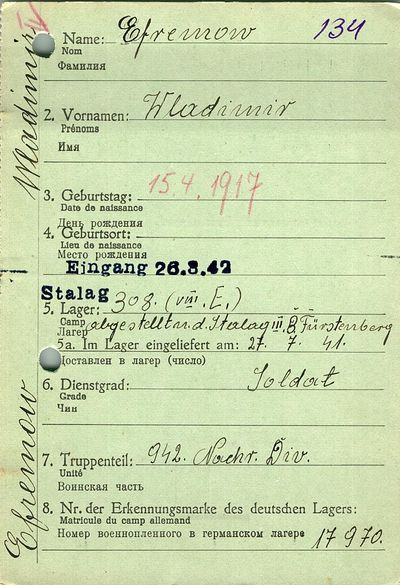 Wladimir
Efremow
IV
134
Name: Efremow
Nom
Фамилия
2. Vornamen: Wladimir
Prénoms
Имя
3. Geburtstag: 15.4.1917
Date de naissance
День рождения
4. Geburtsort:
Lieu de naissance
Место рождения
Eingang 26.3.42
Stalag
5. Lager: 308. (VIII. E.)
Camp abgestellt n. d. Stalag III B Fürstenberg
Лагерь
5a. Im Lager eingeliefert am: 27. 7. 41.
Доставлен в лагер (число)
6. Dienstgrad: Soldat
Grade
Чин
7. Truppenteil: 942. Nachr. Div.
Unité
Воинская часть
8. Nr. der Erkennungsmarke des deutschen Lagers:
Matricule du camp allemand
Номер военнопленного в германском лагере 17970.